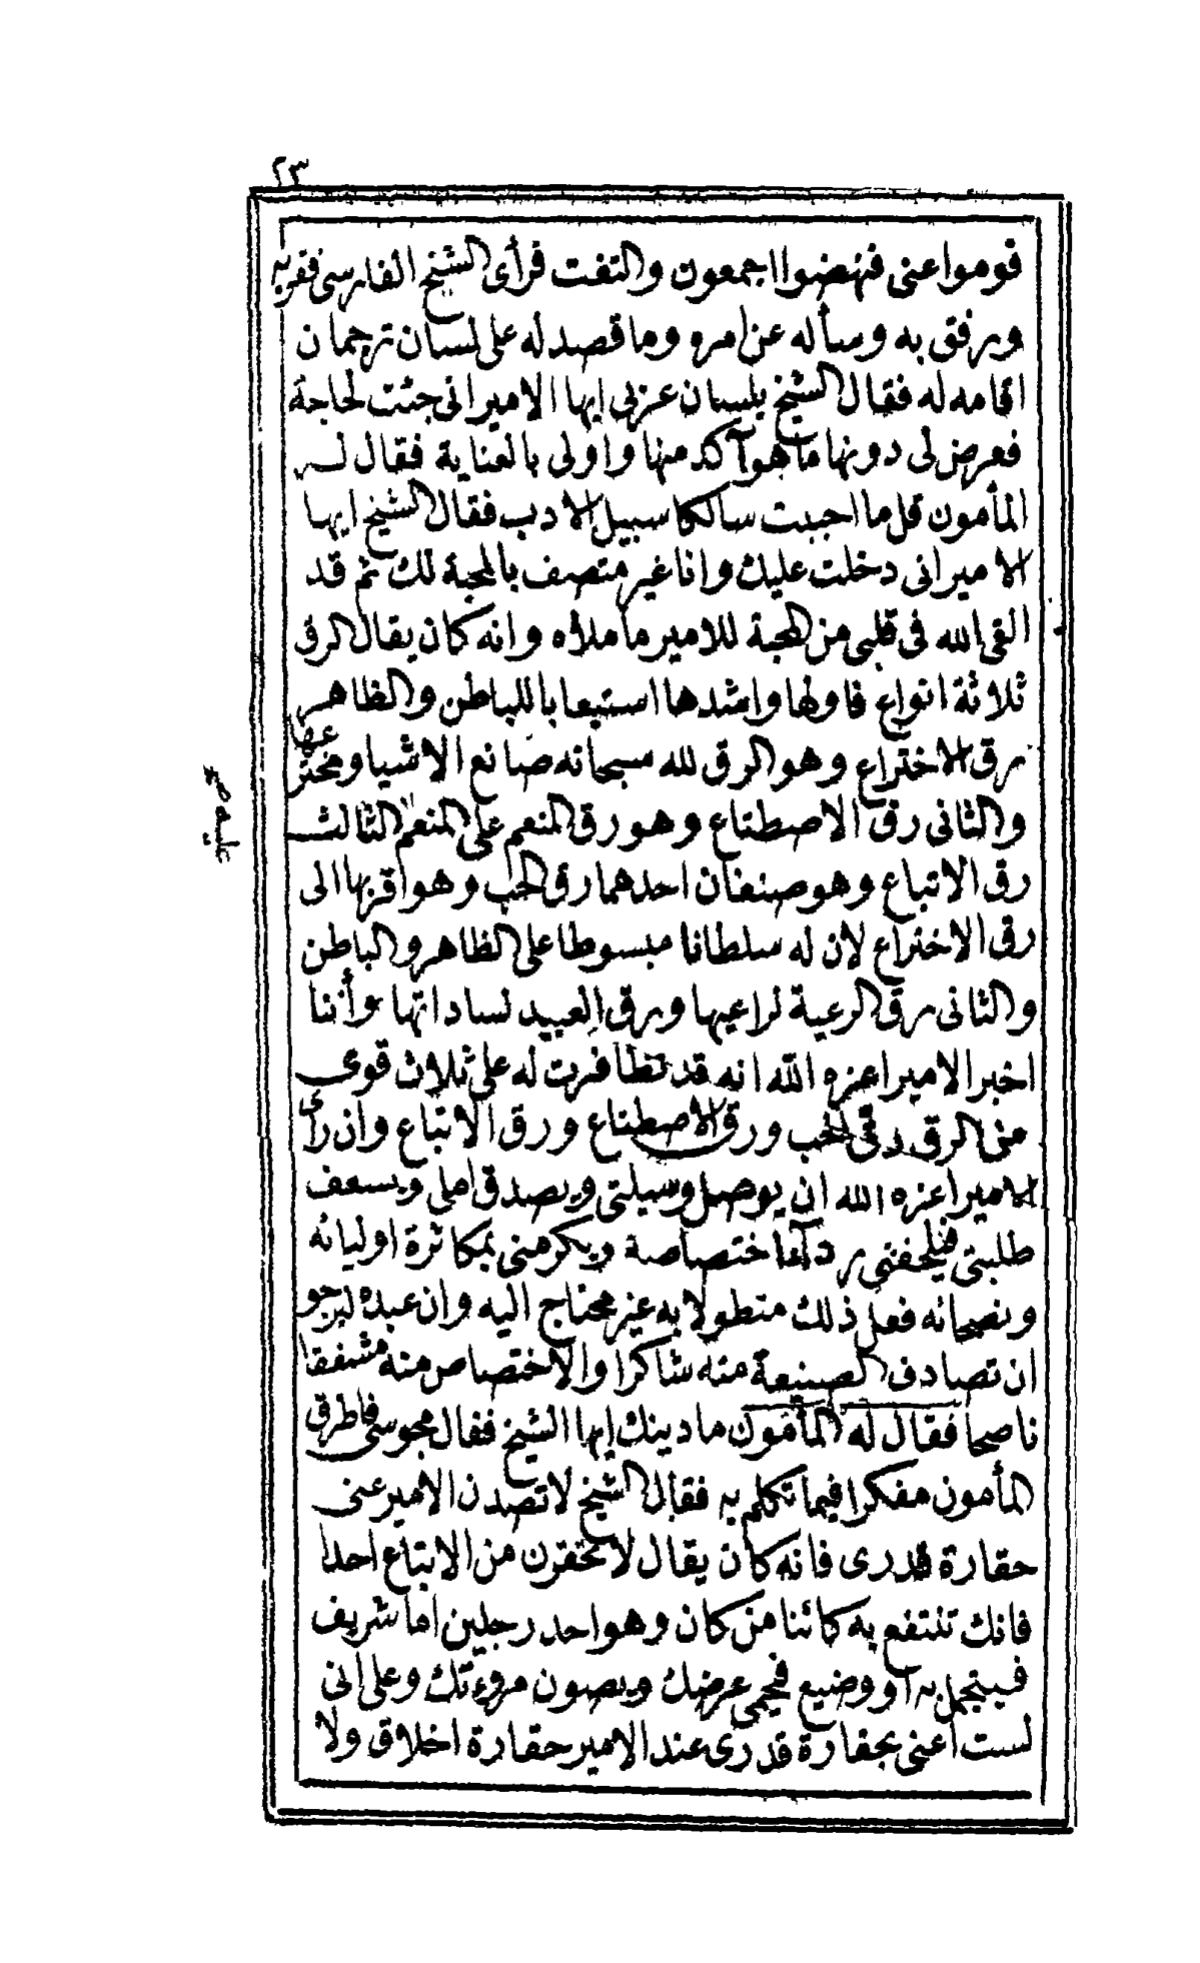 ٢٣
قوموا عنى فنهضوا اجمعون والتفت فرأى الشيخ الفارسى فقربه
ورفق به وسأله عن امره وما قصد له على لسان ترجمان
اقامه له فقال الشيخ بلسان عربى ايها الامير انى جئت لحاجة
فعرض لى دونها ما هو آكد منها واولى بالعناية فقال له
المأمون قل ما احببت سالكا سبيل الادب فقال الشيخ ايها
الامير انى دخلت عليك وانا غير متصف بالمحبة لك ثم قد
القى الله فى قلبى من المحبة للامير ما ملأه وانه كان يقال الرق
ثلاثة انواع فاولها واشدها استيعابا للباطن والظاهر
رق الاختراع وهو الرق لله سبحانه صانع الاشيا ومخترعها
والثانى رق الاصطناع وهو رق المنعم على المنعم الثالث
عليه صح
رق الاتباع وهو صنفان احدهما رق الحب وهو اقربها الى
رق الاختراع لان له سلطانا مبسوطا على الظاهر والباطن
والثانى رق الرعية لراعيها ورق العبيد لساداتها وأننا
اخبر الامير اعزه الله انه قد تظافرت له على ثلاث قوى
من الرق رق الحب ورق الاصطناع ورق الاتباع وان رأى
الامير اعزه الله ان يوصل وسيلتى ويصدق املى ويسعف
طلبتى فيلحفنى رداء اختصاصه ويكرمنى بمكاثرة اوليائه
ونصحائه فعل ذلك متطولا به غير محتاج اليه وان عبده ليرجو
ان تصادف الصنيعة منه شاكرا والاختصاص منه مشفقا
ناصحا فقال له المأمون ما دينك ايها الشيخ فقال مجوسى فاطرق
المأمون مفكرا فيما تكلم به فقال الشيخ لا تصدن الامير عنى
حقارة قدرى فانه كان يقال لا تحتقرن من الاتباع احدا
فانك تنتفع به كائنا من كان وهو احد رجلين اما شريف
فيتجمل به او وضيع فيحمى عرضك ويصون مروءتك وعلى انى
لست اعنى بحقارة قدرى عند الامير حقارة اخلاق ولا